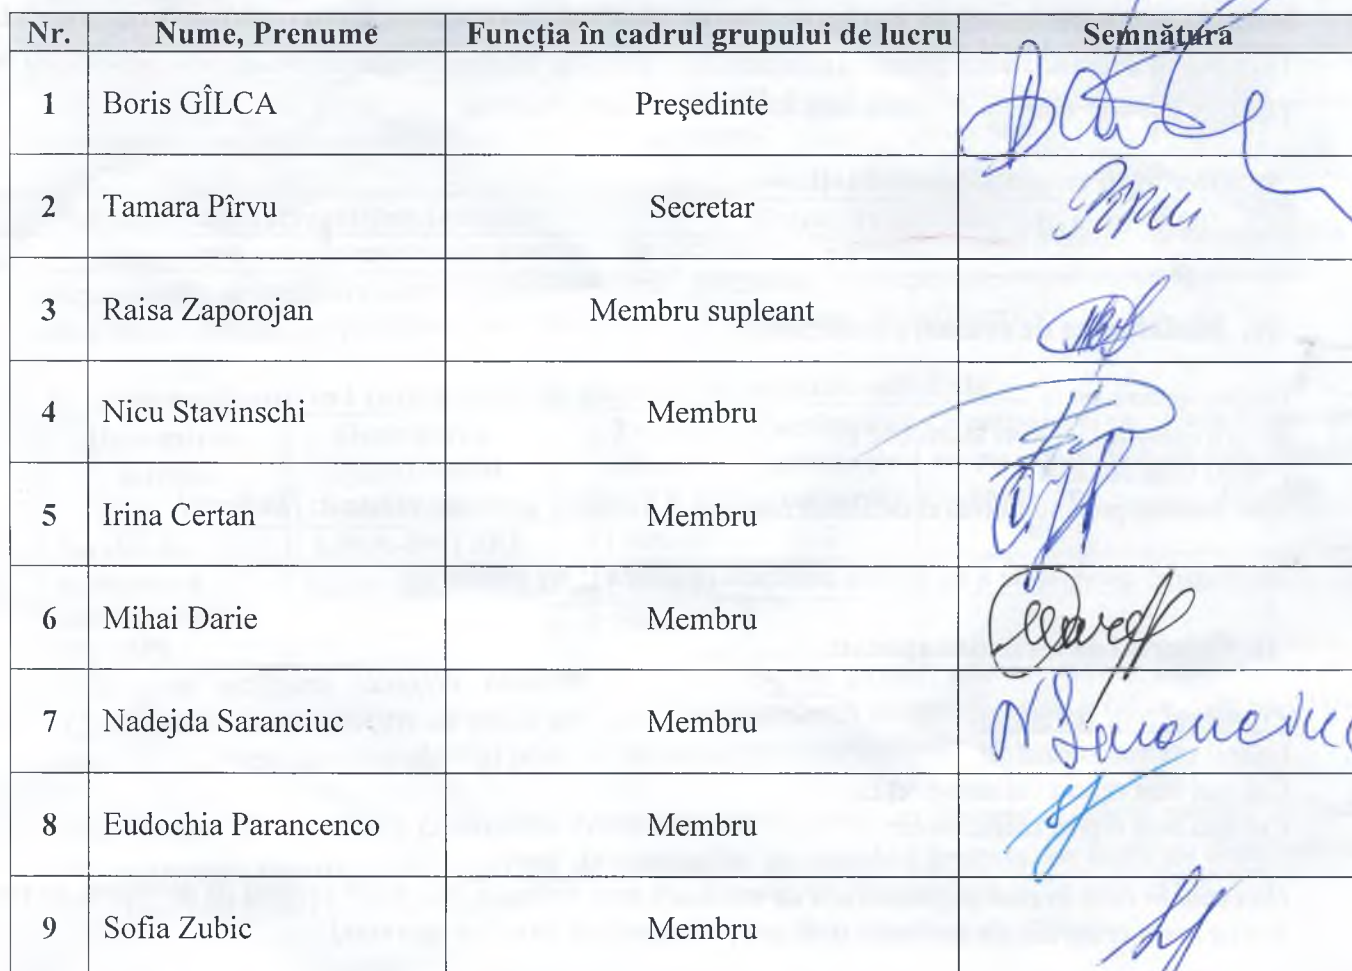 Nr. Nume, Prenume Funcția în cadrul grupului de lucru Semnătura
1 Boris GÎLCA Președinte
2 Tamara Pîrvu Secretar
3 Raisa Zaporojan Membru supleant
4 Nicu Stavinschi Membru
5 Irina Certan Membru
6 Mihai Darie Membru
7 Nadejda Saranciuc Membru
8 Eudochia Parancenco Membru
9 Sofia Zubic Membru